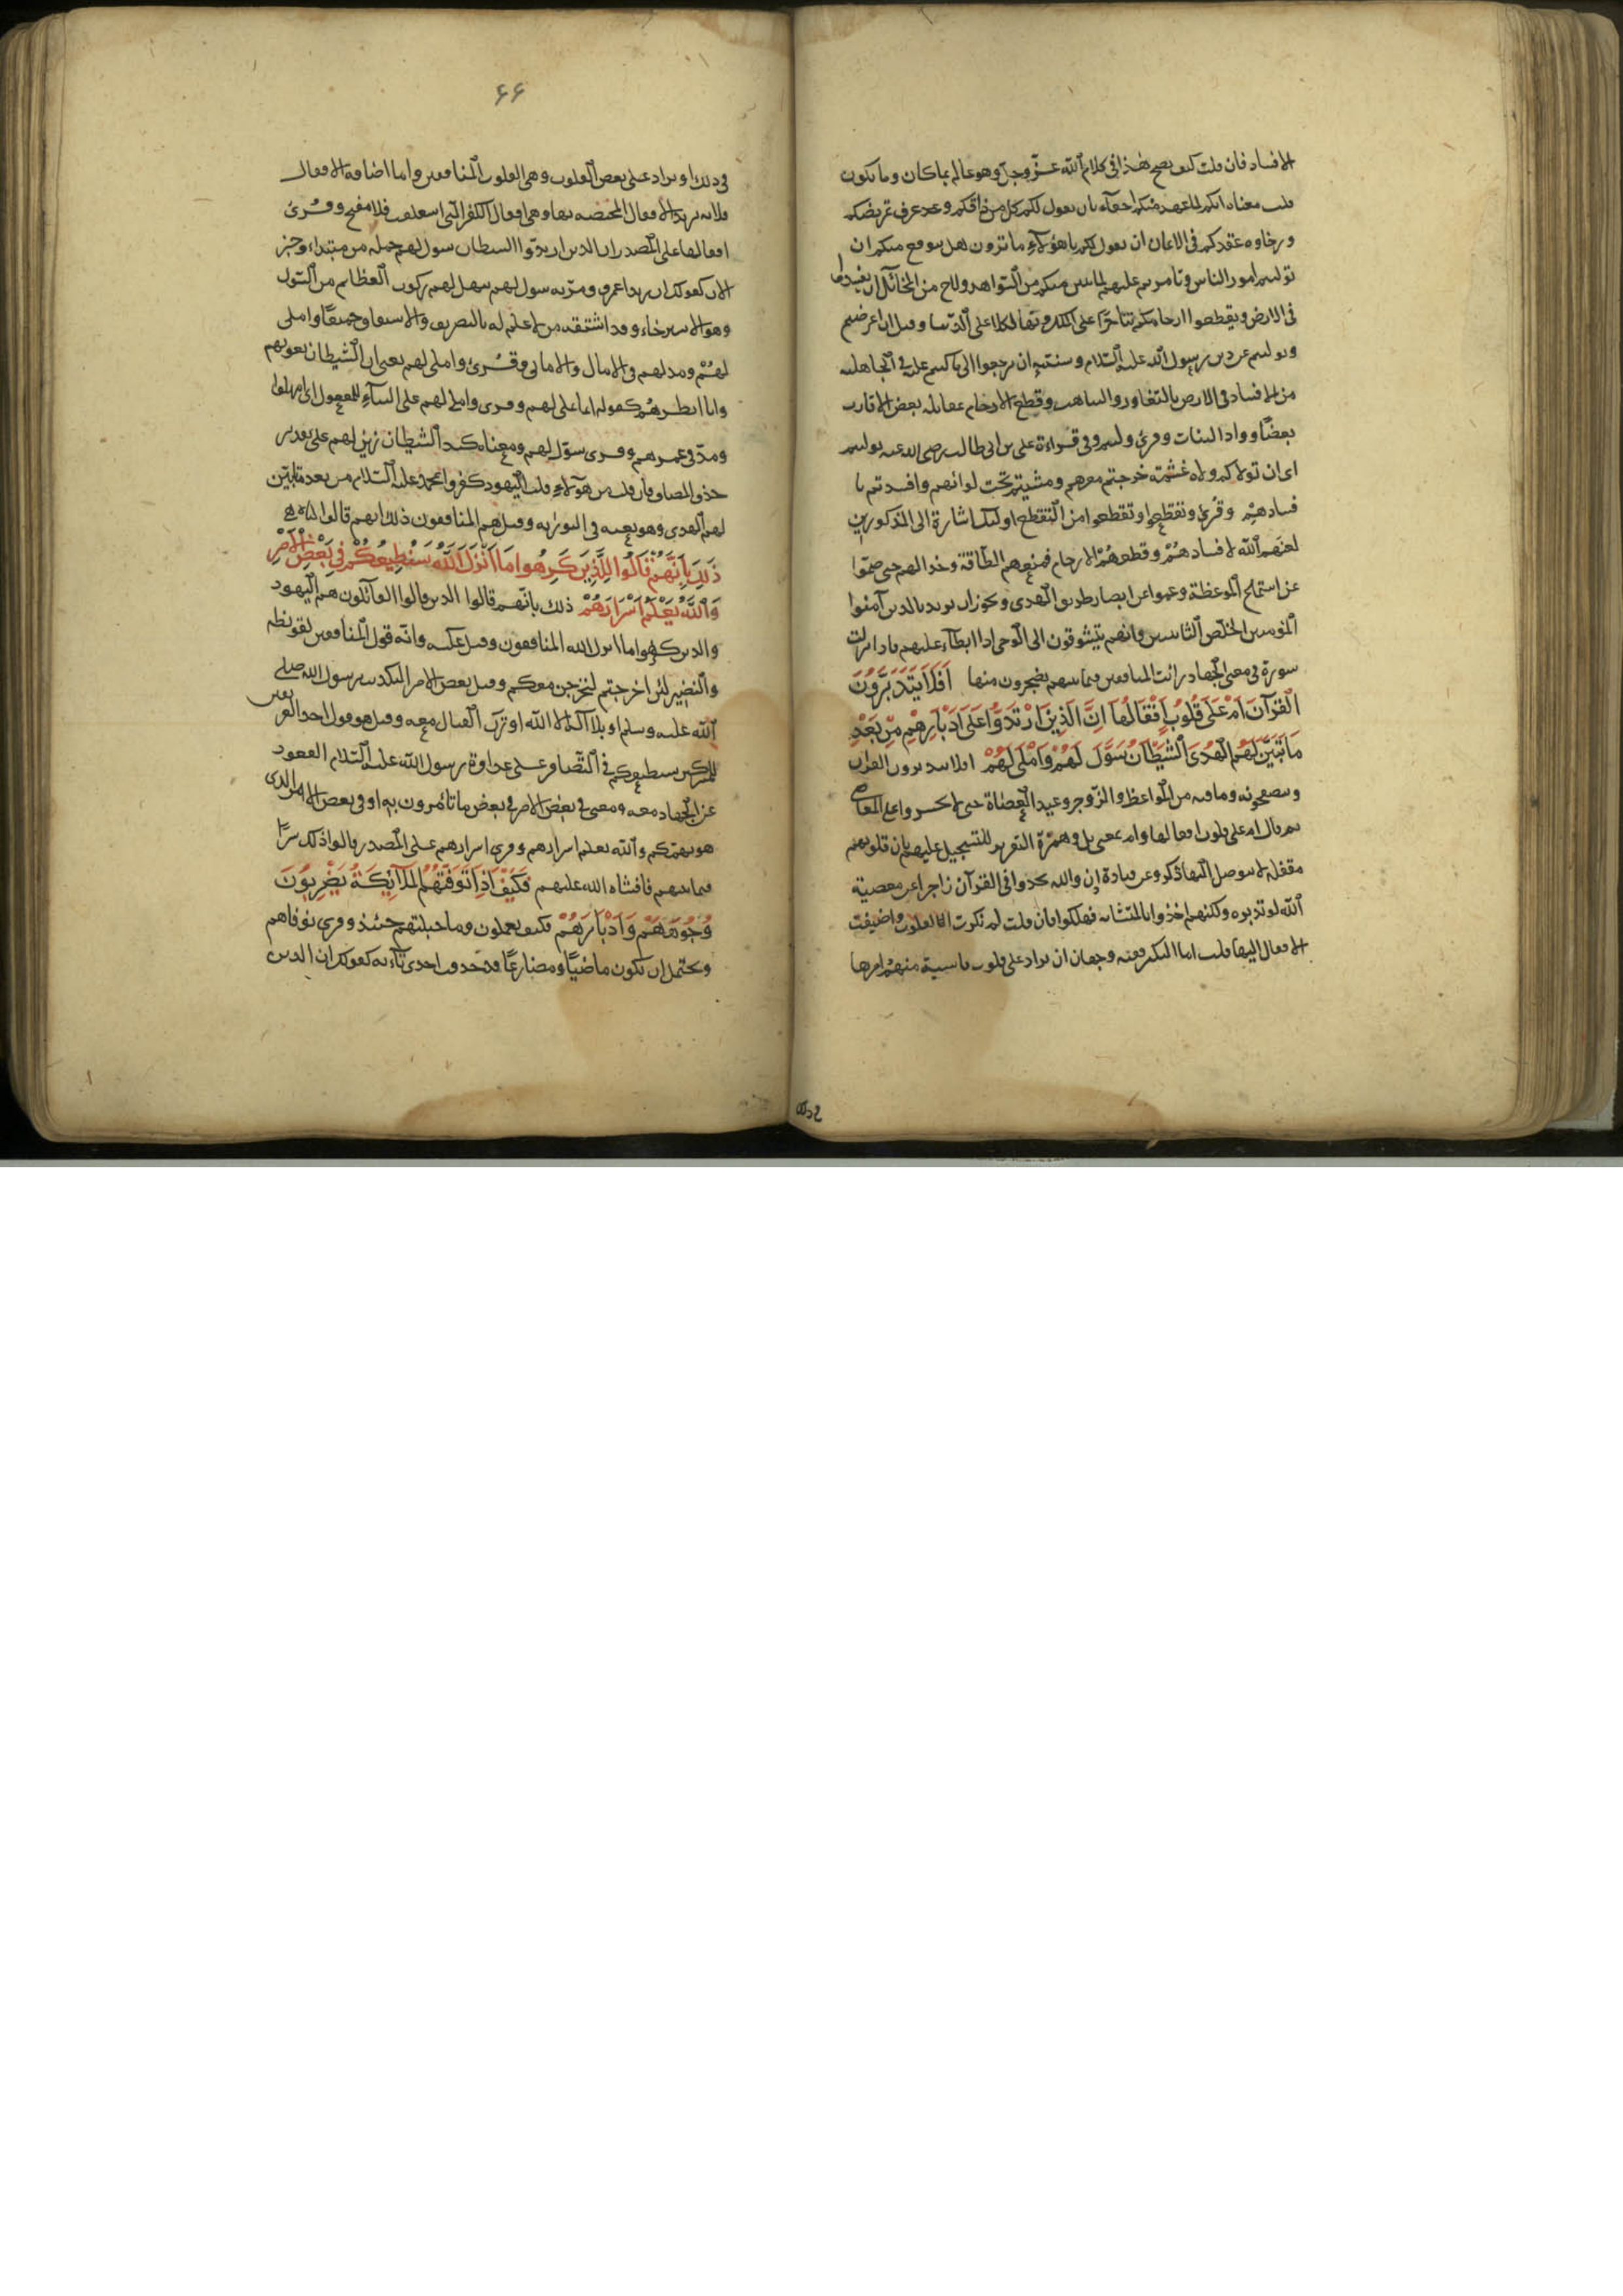 الافساد فان قلت كيف يصح هذا في كلام الله عز وجل وهو عالم بما كان وما يكون
قلت معناه انكم لما عهد منكم احقاء بان يقول لكم كل من ذاقكم وعرف تمريضكم
ورخاوة عقدكم في الايمان ان يقول لكم يا هؤلاء ما ترون هل يتوقع منكم ان
توليتم امور الناس وتامرتم عليهم لما تبين منكم من الشواهد ولاح من المخائل ان تفسدوا
في الارض وتقطعوا ارحامكم تناحرا على الملك وتهالكا على الدنيا وقيل ان اعرضتم
وتوليتم عن دين رسول الله عليه السلام وسنته ان ترجعوا الى ما كنتم عليه في الجاهلية
من الافساد في الارض بالتغاور والتناهب وقطع الارحام بمقاتلة بعض الاقارب
بعضا وواد البنات وقرئ وليتم وفي قراءة علي بن ابي طالب رضي الله عنه توليتم
اى ان تولاكم ولاة غشمة خرجتم معهم ومشيتم تحت لوائهم وافسدتم با
فسادهم وقرئ وتقطعوا وتقطعوا من التقطع اولئك اشارة الى المذكورين
لعنهم الله لافسادهم وقطعهم الارحام فمنعهم الطافه وخذلهم حتى صموا
عن استماع الموعظة وعموا عن ابصار طريق الهدى ويجوز ان يريد بالذين آمنوا
المؤمنين الخلص الثابتين وانهم يتشوقون الى الوحى اذا ابطأ عليهم فاذا انزلت
سورة في معنى الجهاد رايت المنافقين فيما بينهم يضجرون منها افلا يتدبرون
القرآن ام على قلوب اقفالها ان الذين ارتدوا على ادبارهم من بعد
ما تبين لهم الهدى الشيطان سول لهم واملى لهم افلا يتدبرون القرآن
ويتصفحونه وما فيه من المواعظ والزواجر ووعيد العصاة حتى لا يجسروا على المعاصي
ثم قال ام على قلوب اقفالها وام بمعنى بل وهمزة التقرير للتسجيل عليهم بان قلوبهم
مقفلة لا يتوصل اليها ذكر وعن قتادة إذن والله يجدوا في القرآن زاجرا عن معصية
الله لو تدبروه ولكنهم اخذوا بالمتشابه فهلكوا فان قلت لم نكرت القلوب واضيفت
الاقفال اليها قلت اما التنكير ففيه وجهان ان يراد على قلوب قاسية مبهم امرها
في ذلك
۶۶
في ذلك او يراد على بعض القلوب وهي القلوب المنافقين واما اضافة الاقفال
فلانه يريد الاقفال المختصة بها وهي اقفال الكفر التي استغلقت فلا تنفتح وقرئ
اقفالها على المصدر ان الذين ارتدوا الشيطان سول لهم جملة من مبتداء وخبر
لان كقولك ان زيدا عمرو مر به سول لهم سهل لهم ركوب العظايم من السول
وهو الاسترخاء وقد اشتقه من لا علم له بالتصريف والاشتقاق جميعا واملى
لهم ومد لهم في الآمال والاماني وقرئ واملى لهم يعني ان الشيطان يغويهم
وانا انظرهم كقوله انما نملي لهم وقرئ واملي لهم على البناء للمفعول اى امهلوا
ومد في عمرهم وقرئ سول لهم ومعناه كيد الشيطان زين لهم على تقدير
حذف المضاف فان قلت من هؤلاء قلت اليهود كفروا بمحمد عليه السلام من بعد ما تبين
لهم الهدى وهو نعته في التورٰية وقيل هم المنافقون ذلك بانهم قالوا
ذلك بانهم قالوا للذين كرهوا ما انزل الله سنطيعكم في بعض الامر
والله يعلم اسرارهم ذلك بانهم قالوا الذين قالوا القائلون هم اليهود
والذين كرهوا ما انزل الله المنافقون وقيل عكسه وانه قول المنافقين لقريظة
والنضير لئن اخرجتم لنخرجن معكم وقيل بعض الامر التكذيب برسول الله صلى
الله عليه وسلم او بلا آله الا الله او ترك القتال معه وقيل هو قول احد الفريقين
للمشركين سنطيعكم في التضافر على عداوة رسول الله عليه السلام والقعود
عن الجهاد معه ومعنى في بعض الامر في بعض ما تأمرون به او في بعض الامر الذى
هو يهمكم والله يعلم اسرارهم وقرئ اسرارهم على المصدر قالوا ذلك سرا
فيما بينهم فافشاه الله عليهم فكيف اذا توفتهم الملآئكة يضربون
وجوههم وادبارهم فكيف يعملون وما حيلتهم حينئذ وقرئ توفاهم
ويحتمل ان يكون ماضيا ومضارعا قد حذفت احدى تاءيه كقوله ان الذين